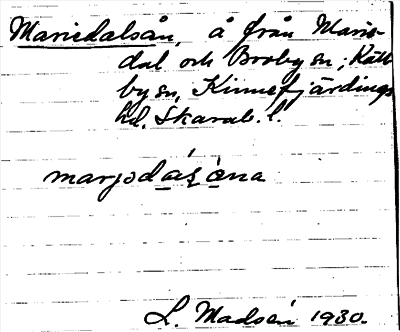 Mariedalsån, å från Marie-
dal och Broby sn; Käll
by sn, Kinnefjärdings
hd. Skarab. l.
L. Madsén 1930.